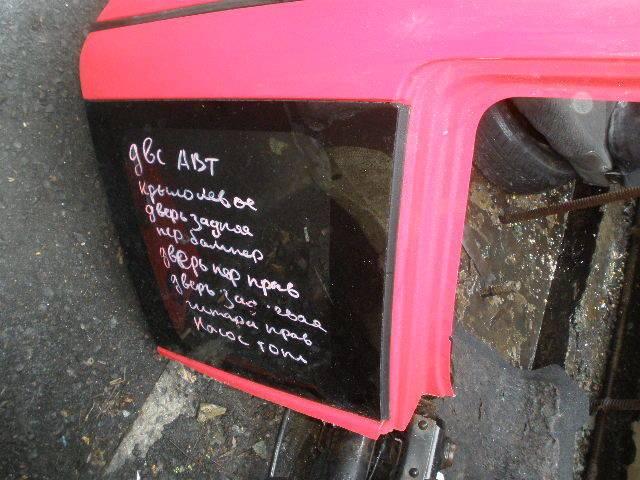 двс АВТ
крыло левое
дверь задняя
пер бампер
дверь пер прав
дверь левая
прав
насос топл